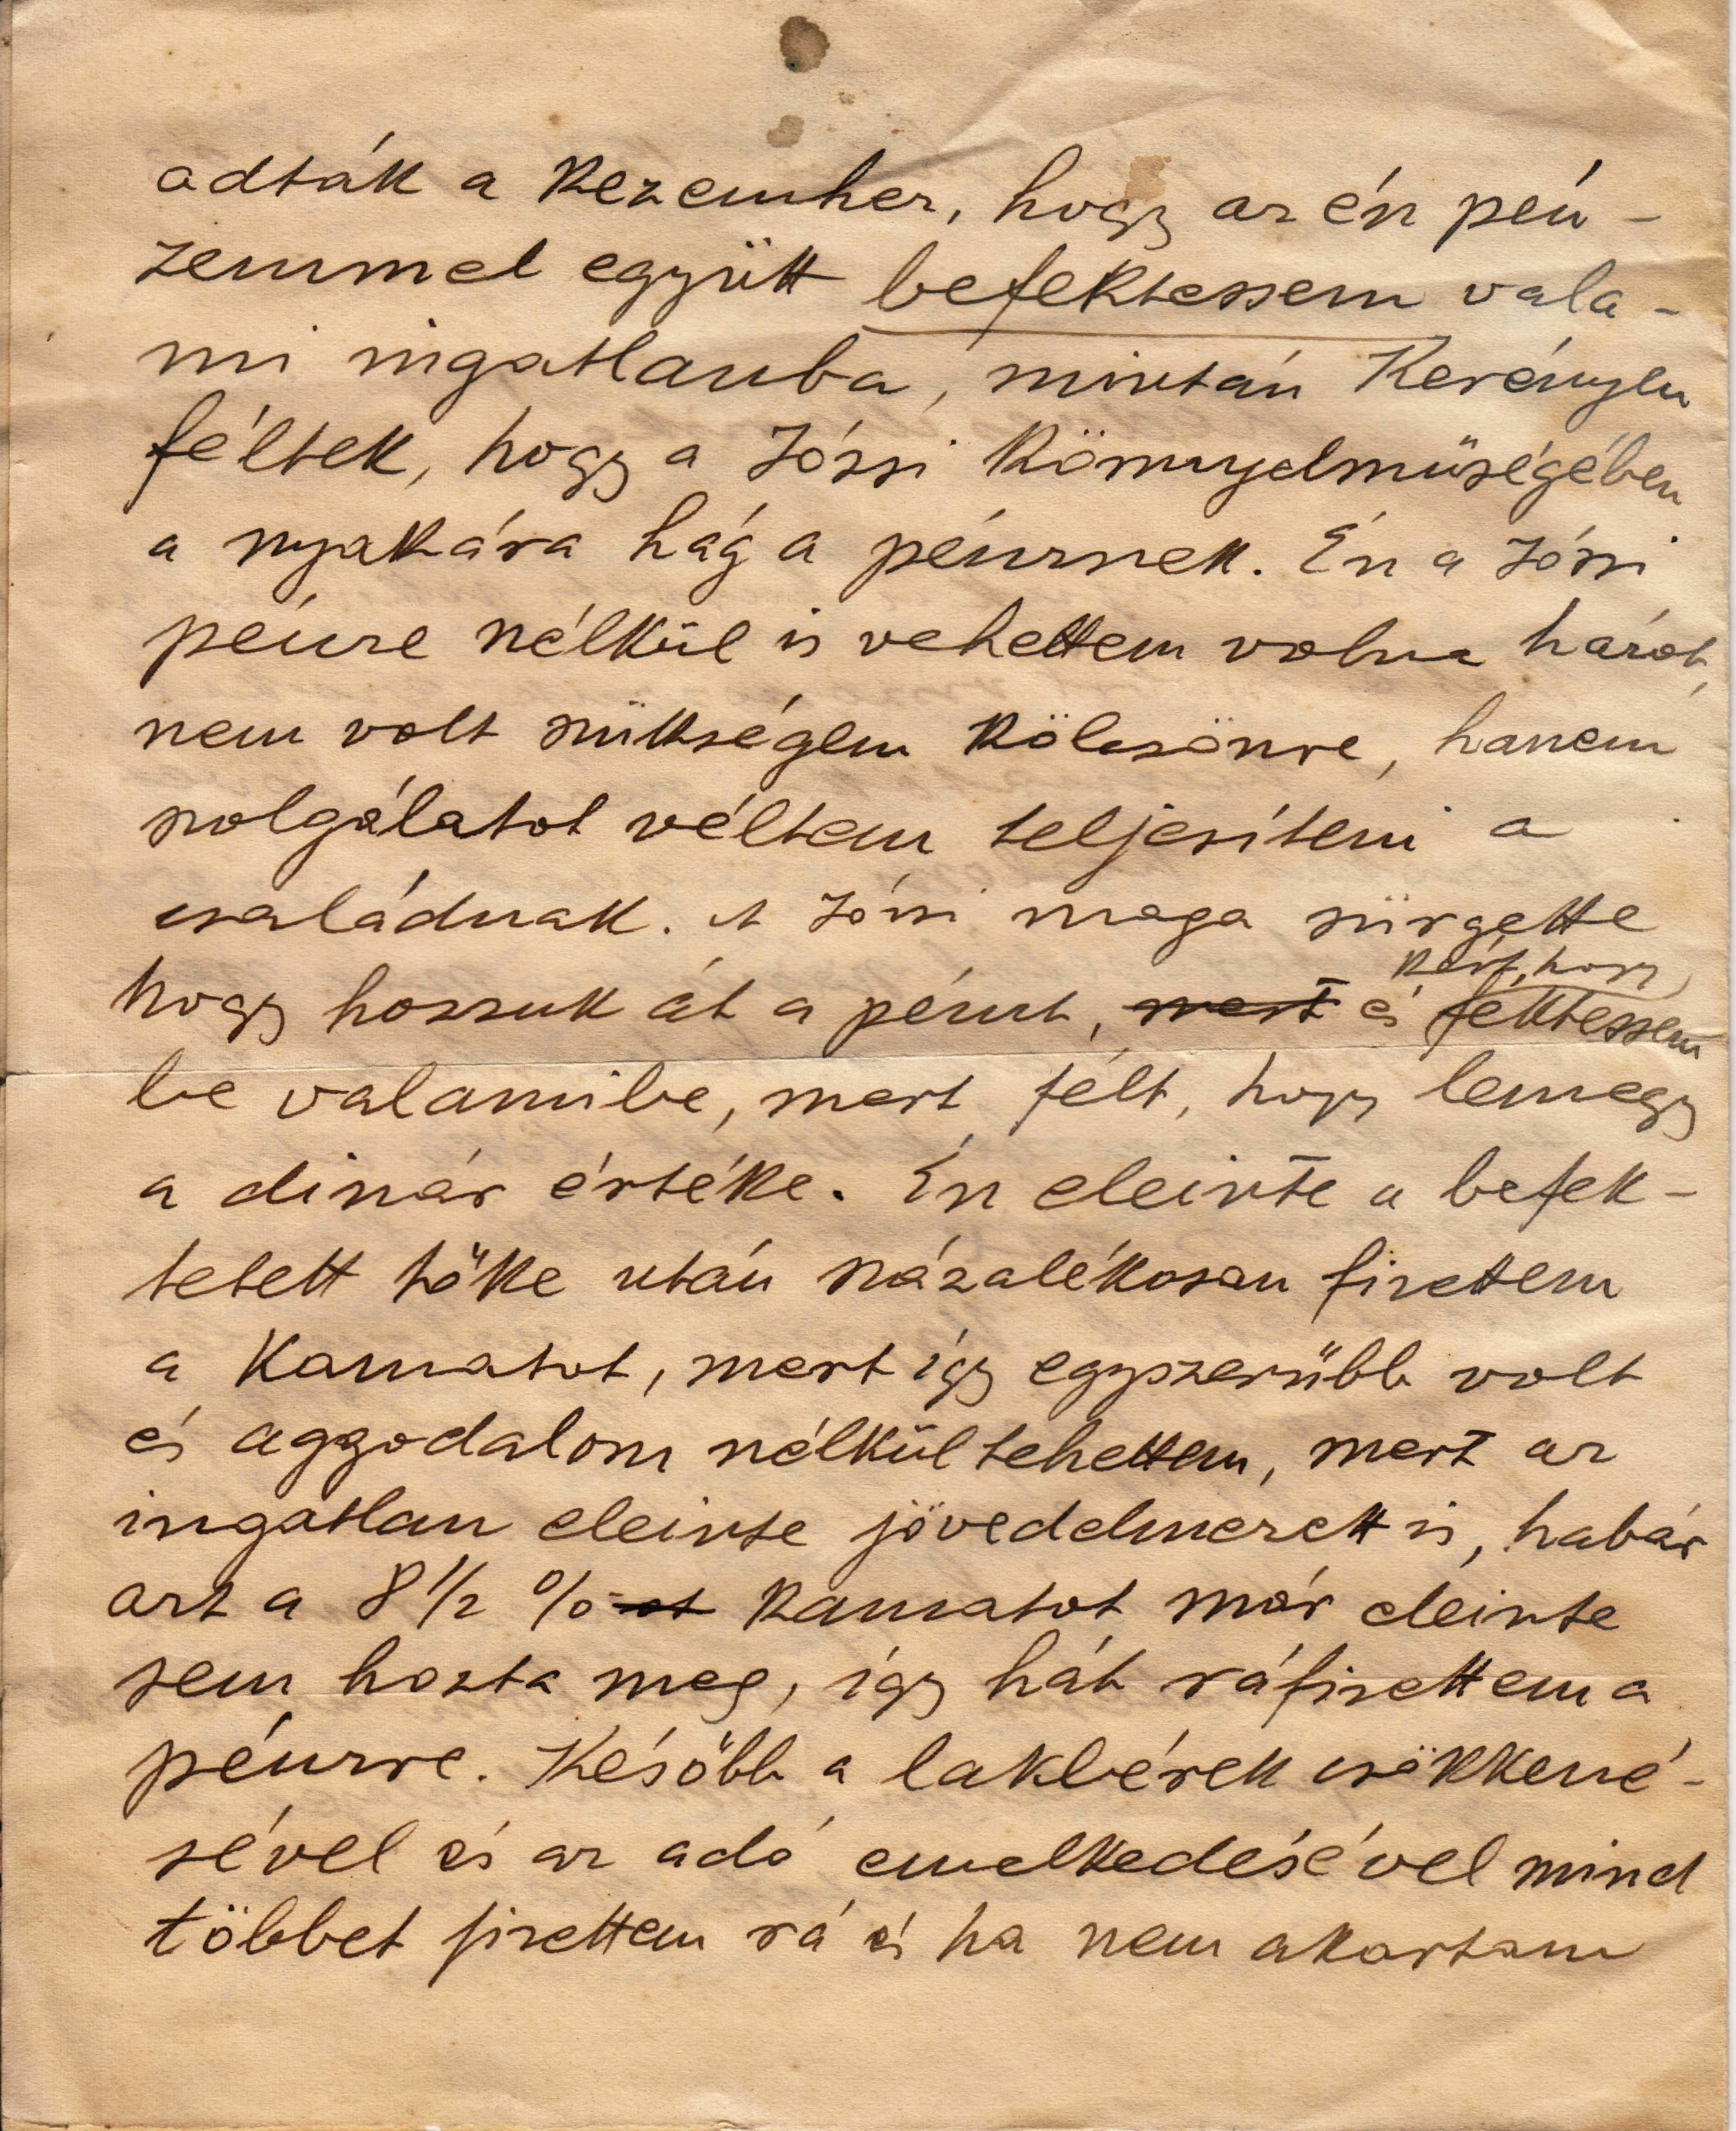 adták a kezemhez, hogy az én pén-
zemmel együtt befektessem vala-
mi ingatlanba, mintán Kerényben
féltek, hogy a Józsi könnyelmüségében
a nyakára hág a pénznek. Én a Józsi
pénze nélkül is vehettem volna házat,
nem volt szükségem kölcsönre, hanem
szolgálatot véltem teljesíteni a
családnak. A Józsi maga sürgette
hogy hozzuk át a pénzt, mert és kért, hogy féktessem
be valamibe, mert félt, hogy lemegy
a dinár értéke. Én eleinte a befek-
tetett tőke után százalékosan fizettem
a kamatot, mert így egyszerűbb volt
és aggodalom nélkül tehettem, mert az
ingatlan eleinte jövedelmezett is, habár
azt a 8 1/2 %-ot kamatot már eleinte
sem hozta meg, így hát ráfizettem a
pénzre. Később a lakbérek csökkené-
sével és az adó emelkedésével mind
többet fizettem rá és ha nem akartam